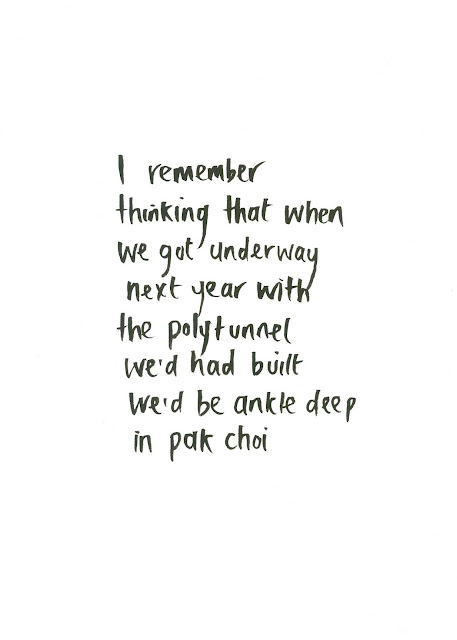 I remember
thinking that when
we got underway
next year with
the polytunnel
we'd had built
we'd be ankle deep
in pak choi